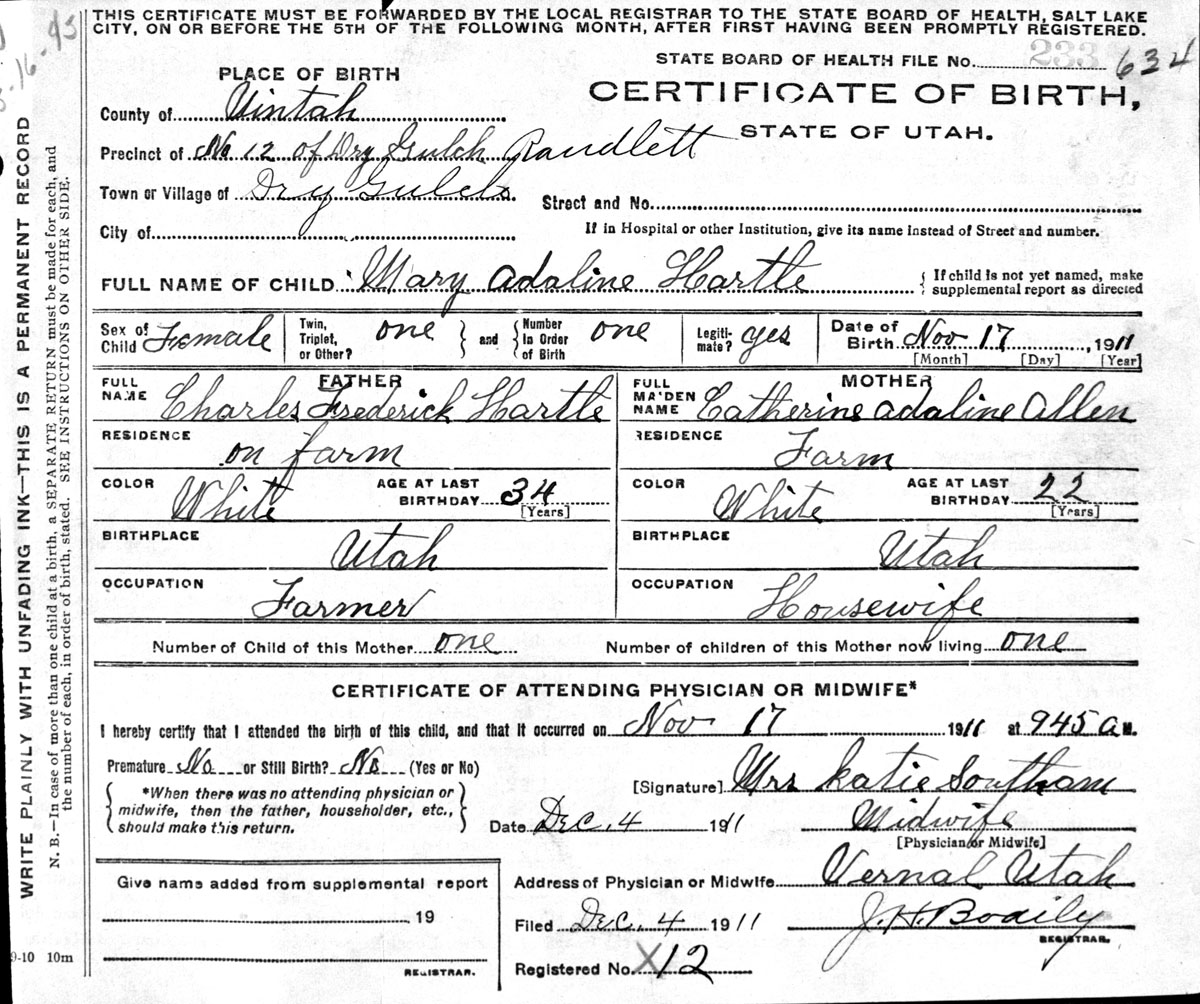 THIS CERTIFICATE MUST BE FORWARDED BY THE LOCAL REGISTRAR TO THE STATE BOARD OF HEALTH, SALT LAKE
CITY, ON OR BEFORE THE 5TH OF THE FOLLOWING MONTH, AFTER FIRST HAVING BEEN PROMPTLY REGISTERED.
STATE BOARD OF HEALTH FILE No. 233 634
PLACE OF BIRTH
CERTIFICATE OF BIRTH,
STATE OF UTAH.
County of Uintah
Precinct of No 12 of Dry Gulch Randlett
Town or Village of Dry Gulch
Street and No.
City of
If in Hospital or other Institution, give its name instead of Street and number.
FULL NAME OF CHILD Mary Adaline Hartle
{ If child is not yet named, make
supplemental report as directed
Sex of Child Female
Twin, Triplet, or Other? one } and { Number In Order of Birth one
Legiti-mate? yes
Date of Birth Nov 17, 1911
[Month] [Day] [Year]
FATHER
FULL NAME Charles Frederick Hartle
MOTHER
FULL MAIDEN NAME Catherine Adaline Allen
RESIDENCE on farm
RESIDENCE Farm
COLOR White AGE AT LAST BIRTHDAY 34 [Years]
COLOR White AGE AT LAST BIRTHDAY 22 [Years]
BIRTHPLACE Utah
BIRTHPLACE Utah
OCCUPATION Farmer
OCCUPATION Housewife
Number of Child of this Mother one Number of children of this Mother now living one
CERTIFICATE OF ATTENDING PHYSICIAN OR MIDWIFE*
I hereby certify that I attended the birth of this child, and that it occurred on Nov 17 1911 at 945 a M.
Premature No or Still Birth? No (Yes or No)
{ *When there was no attending physician or
midwife, then the father, householder, etc.,
should make this return. }
[Signature] Mrs Katie Southam
Date Dec. 4 1911 Midwife
[Physician or Midwife]
Give name added from supplemental report
19
REGISTRAR.
Address of Physician or Midwife Vernal Utah
Filed Dec. 4 1911 J. H. Bodily
REGISTRAR.
Registered No. X 12
WRITE PLAINLY WITH UNFADING INK—THIS IS A PERMANENT RECORD
N. B.—In case of more than one child at a birth, a SEPARATE RETURN must be made for each, and
the number of each, in order of birth, stated. SEE INSTRUCTIONS ON OTHER SIDE.
9-10 10m